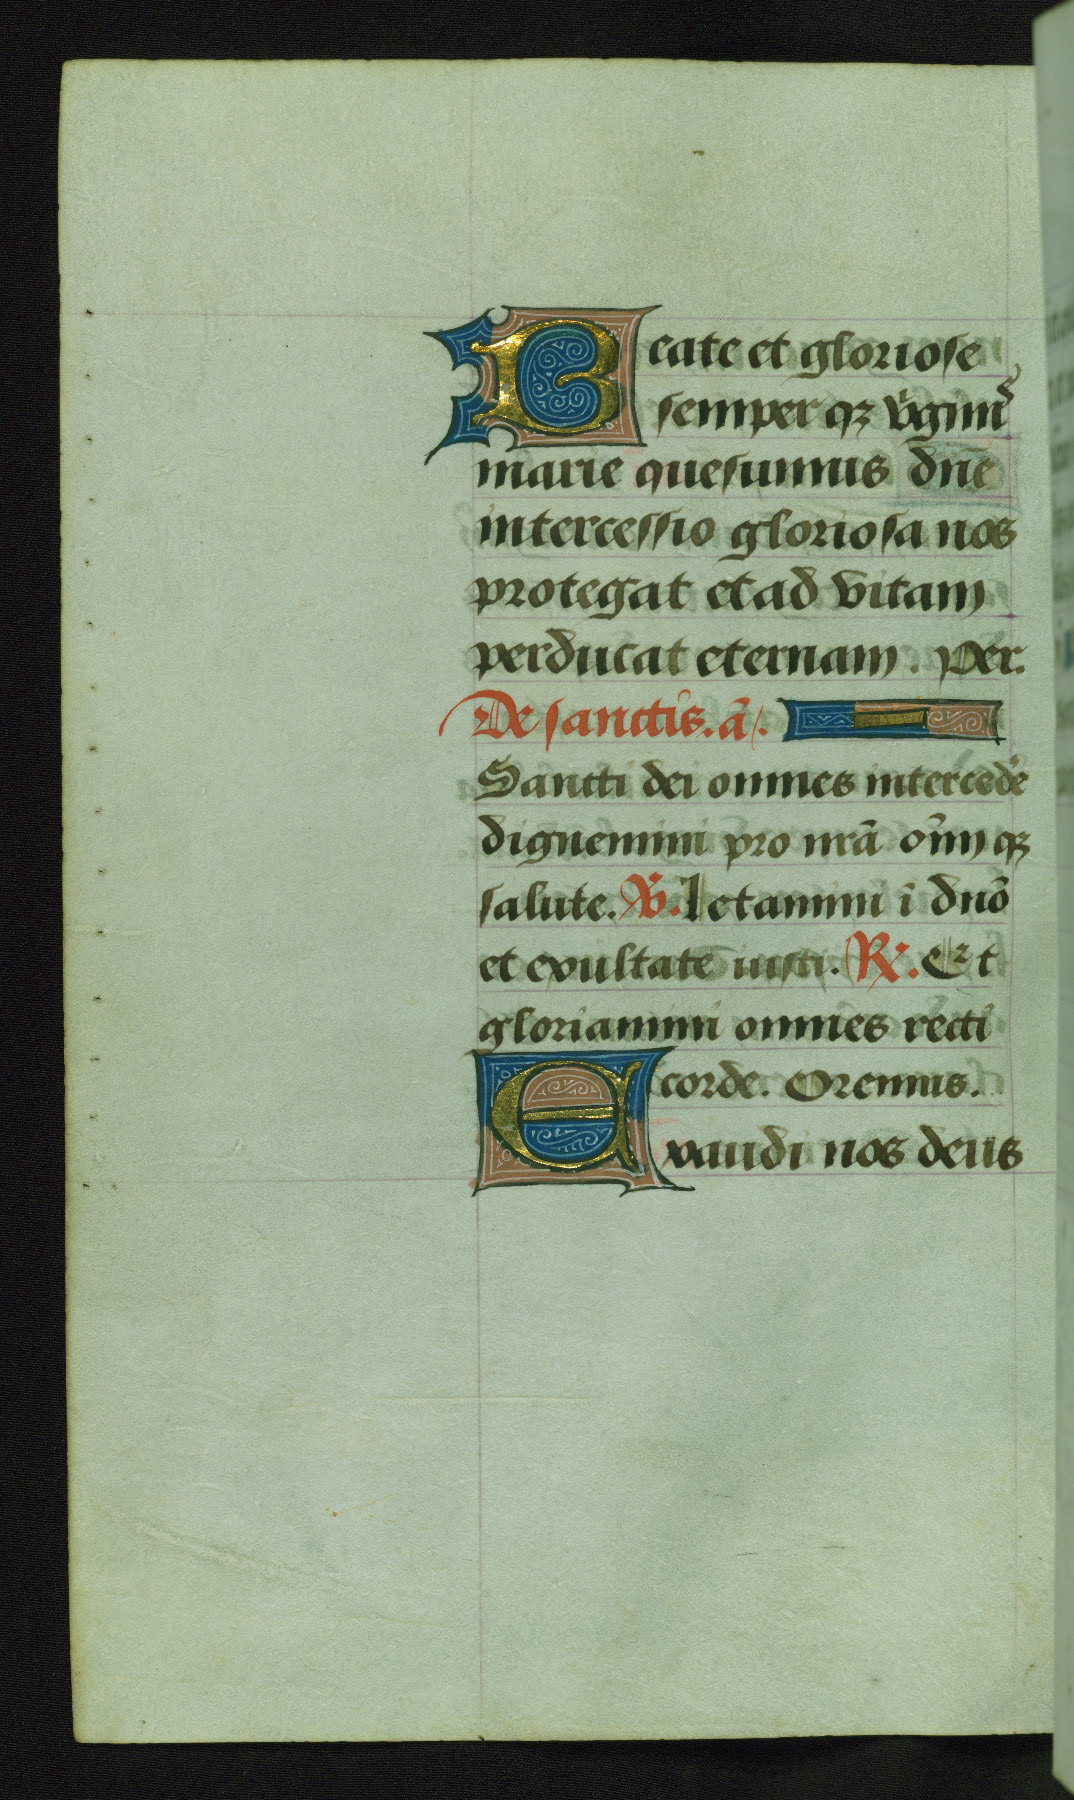 Beate et gloriose
semper qȝ v̾gini᷒
marie quesumus dn̄e
intercessio gloriosa nos
protegat et ad vitam
perducat eternam. Per.
De sanctis. ā.
Sancti dei omnes intercede᷒
dignemini pro nr̄a om̄iu qȝ
salute. ℣. Letamini ī dn̄o
et exultate iusti. ℟. Et
gloriamini omnes recti
corde. Oremus.
Exaudi nos deus